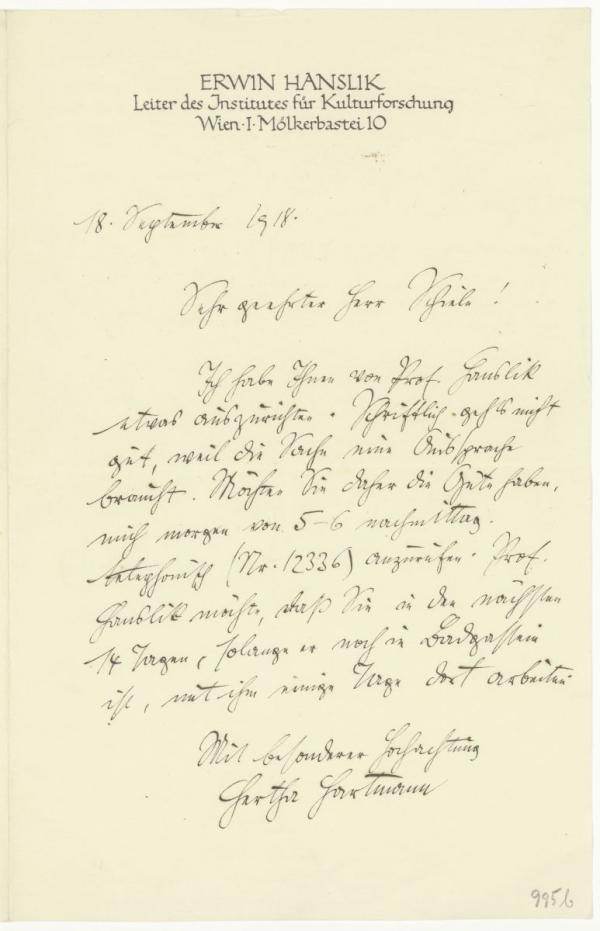 ERWIN HANSLIK
Leiter des Institutes für Kulturforschung
Wien·I·Mölkerbastei 10
18. September 1918.
Sehr geehrter Herr Schiele!
Ich habe Ihnen von Prof. Hanslik
etwas auszurichten. Schriftlich geht's nicht
gut, weil die Sache eine Aussprache
braucht. Möchten Sie daher die Güte haben,
mich morgen von 5-6 nachmittag.
telephonisch (Nr. 12336) anzurufen. Prof.
Hanslik möchte, daß Sie in den nächsten
14 Tagen, solange er noch in Badgastein
ist, mit ihm einige Tage dort arbeiten.
Mit besonderer Hochachtung
Hertha Hartmann
995b